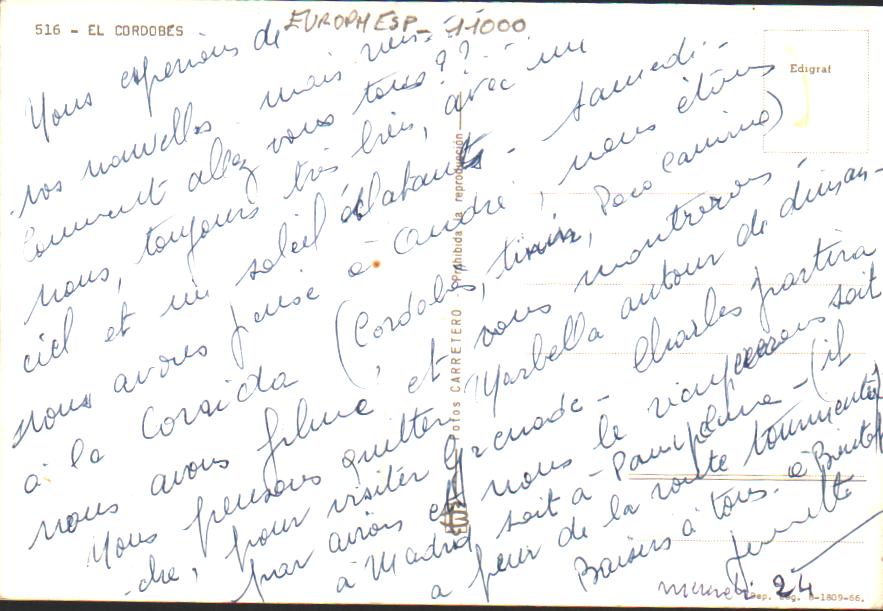 516 - EL CORDOBÉS
EUROPM ESP - 11000
Edigraf
Nous espérions de
vos nouvelles mais rien.
Comment allez vous tous ??
nous, toujours très bien, avec un
ciel et un soleil éclatants - Samedi -
nous avons pensé à André, nous étions
à la Corrida (Cordobès, Paco Camino)
nous avons filmé et vous montrerons -
Nous pensons quitter Marbella autour de diman-
-che, pour visiter Grenade - Charles partira
par avion et nous le rejoindrons soit
à Madrid soit à Pampelune - (il
a peur de la route tourmentée)
Baisers à tous - à Bientôt
Jeannette
mercredi 24
Fotos CARRETERO - Prohibida la reproducción
Dep. Leg. B-1809-66.